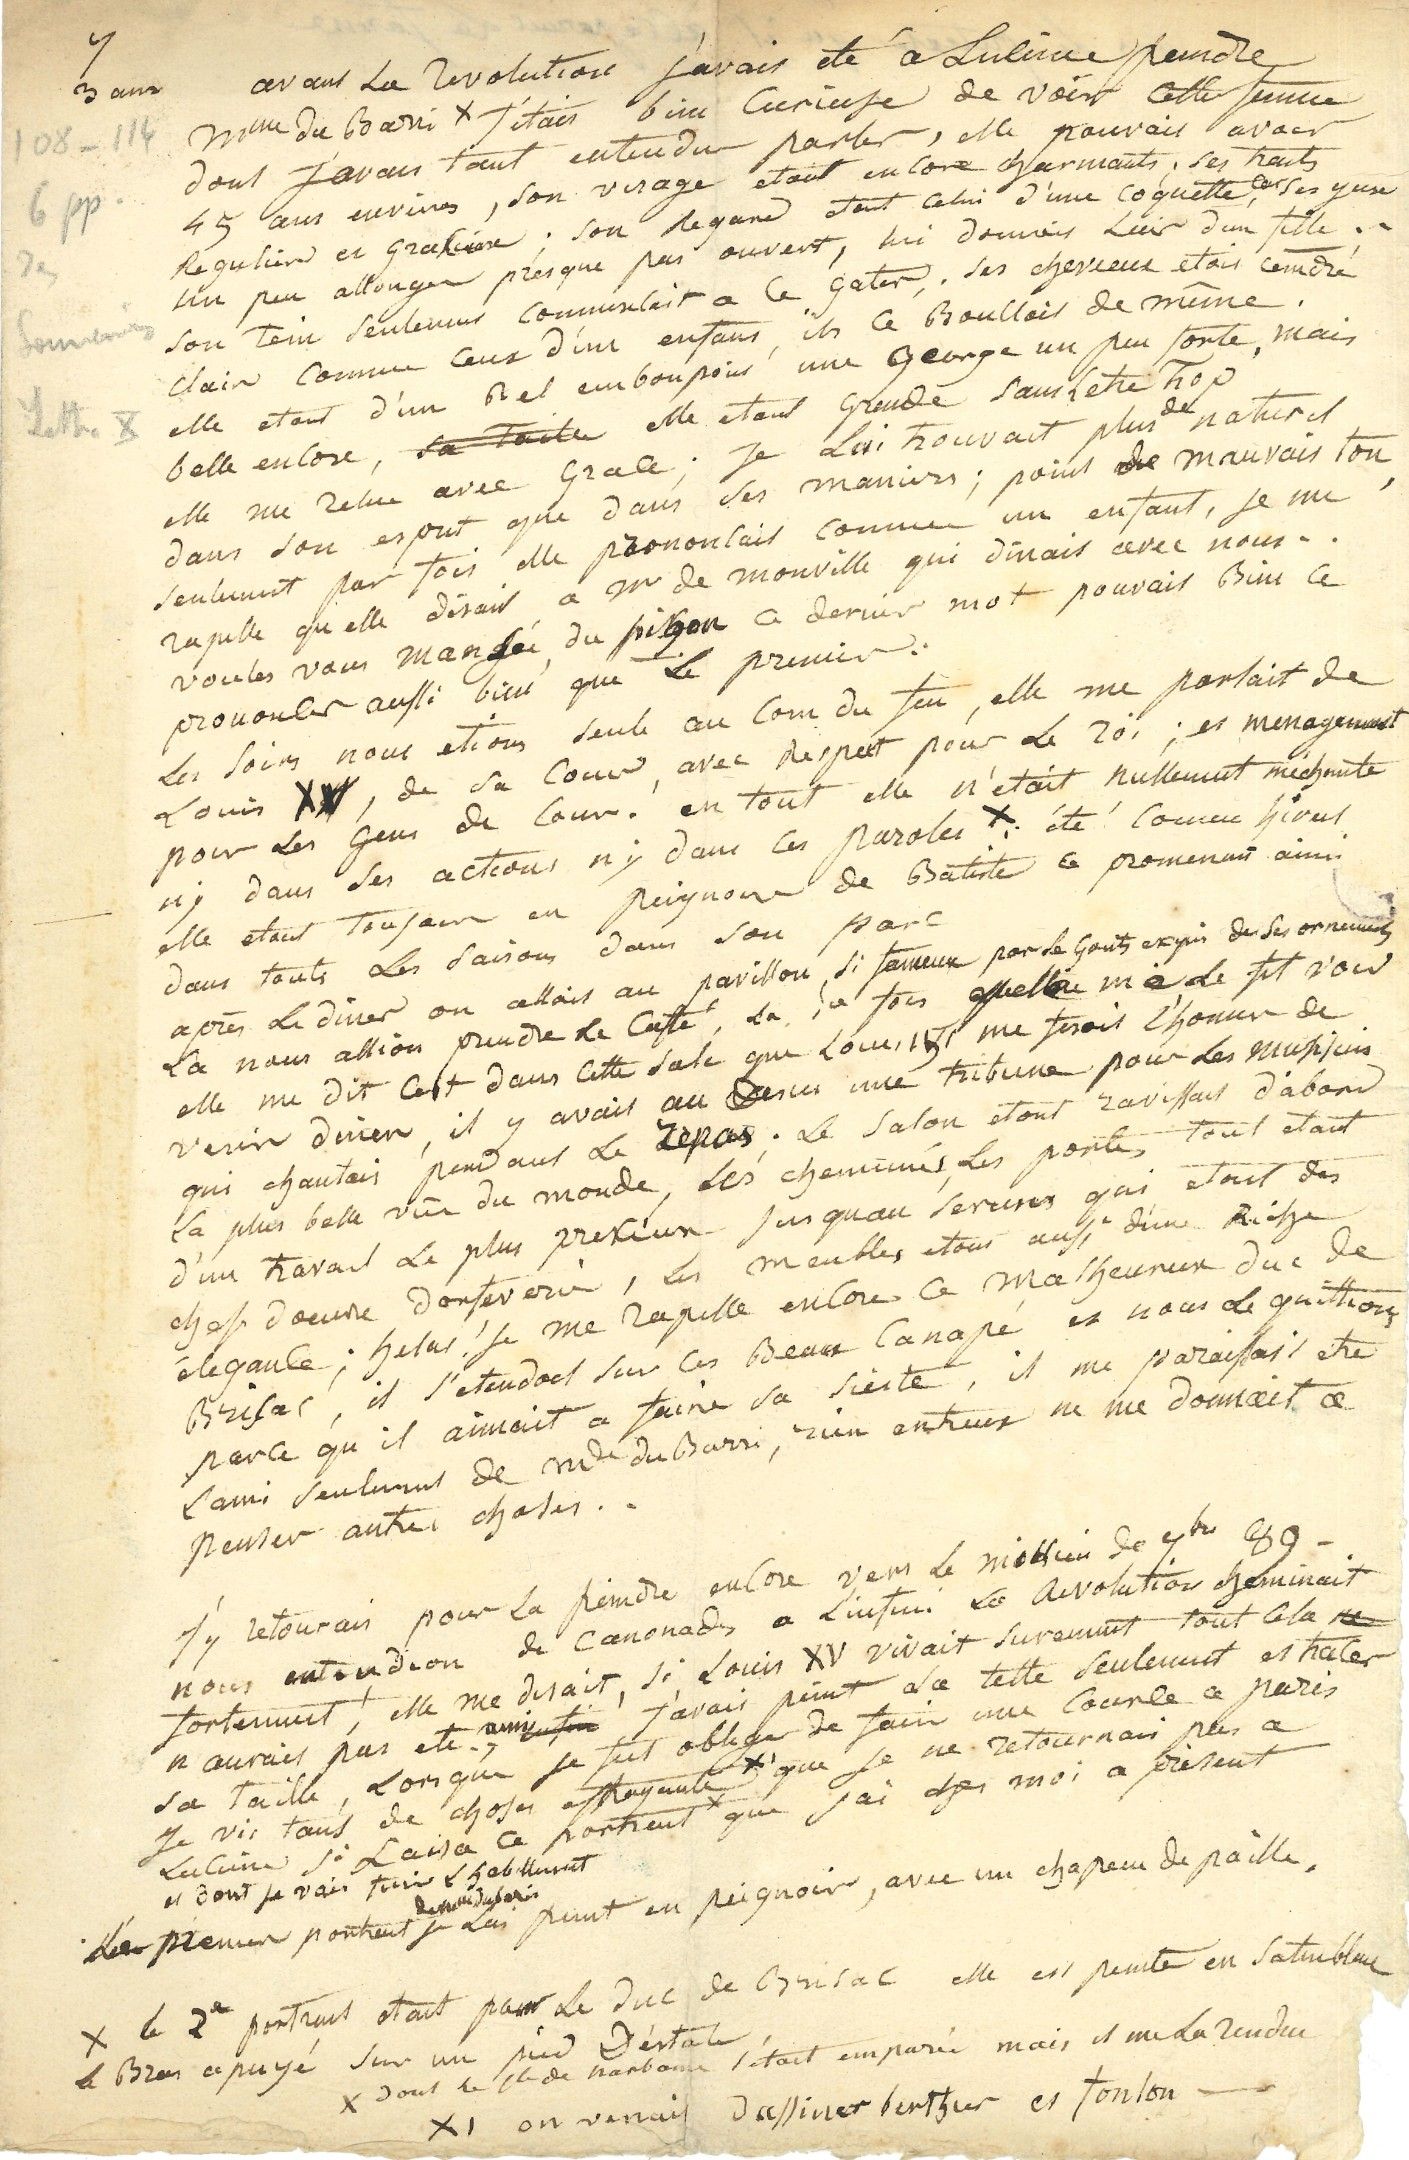 y
3 ans avant La revolution j'avais eté a Lulcine peindre
108-114
6 pp.
de
Souvenirs
Lettre X
Mme du Barri x j'étais bien Curieuse de voir Cette femme
dont j'avais tant entendu parler, elle pouvais avoir
45 ans environ, son visage etait encore charmants, ses traits
Regulier et gracieux; son Regard etait celui d'une coquette, car ses yeux
un peu allonger presque pas ouvert, lui donnais Lair dun fille..
son tein seulement commensait a ce gater,. ses cheveux etois cendré
clair comme ceux d'un enfans, ils ce Boullois de même.
elle etait d'un Bel embonpoins une George un peu forte, mais
belle encore, sa taille elle etait grande sans être trop
elle me resue avec grace; je Lui trouvait plus de naturel
dans son esprit que dans ses maniers; point de mauvais ton,
seulement par fois elle prononcais comme un enfant, je me
rapelle qu elle disais a Mr de monville qui dinais avec nous..
voules vous mangé du pigon ce dernier mot pouvais Bien ce
prononcer aussi bien que Le premier.
Les soirs nous etions seule au coin du feu, elle me parlait de
Louis XV, de sa Cour, avec Respect pour Le roi; et menagement
pour Les Gens de Cour. en tout elle n'était nullement méchante
ny dans ses actions ny dans ces paroles x: été comme hivert
elle etait toujour en peignoire de Batiste ce promenant ainsi
dans touts Les saisons dans son parc
après Le diner on allois au pavillon, si fameux par Le Gouts exquis de ses ornements
La nous allion prendre Le Caffé, La 1e fois quelle me Le fit voir
elle me dit Cest dans Cette sale que Louis 15 me fesois L'honeur de
venir diner, il y avait au Desus une tribune pour Les Musisiens
qui chantois pendant Le repas. Le salon etoit ravissant dabord
La plus belle vüe du monde, Les cheminées, Les portes tout etait
d'un travail Le plus presieux jusquau serures qui etoit des
chefs doeuvre dorfeverie, Les meubles etois aussi d'une Riche
élegance; helas! je me rapelle encore Ce Malheureux duc de
Brisac, il s'etendoit sur Ces Beaux Canapé et nous Le quittions
parce qu il aimait a faire sa sieste, il me paraissais etre
Lami seulement de Mde du Barri, rien entreux ne me donnait a
penser autres choses..
J'y retourais pour La peindre encore vers Le millieu de 7bre 89-
nous entendion de canonades a Linfini La Revolution cheminait
fortement, elle me disait, si Louis XV vivait surement tout Cela ne
n aurais pas eté ainsi j'avais peint La tette seulement et tracer
sa taille, Lorsque je fus obliger de faire une Course a paris
je vis tant de choses effrayante x1 que je ne retournais pas a
Lulcine si Laisa ce portrait x que jai ches moi a présent
et dont je vais finir L habillement
Le premier portrait de Mme duBarri je Lai peint en peignoir, avec un chapeau de paille.
x le 2e portrait etait pour Le Duc de Brisac elle est peinte en satin blanc
le Bras apuyé sur un pied Déstale
x dont le Cte de narbonne s'était emparée mais il me La rendue
x1 on venais Dassiner berthier et foulon